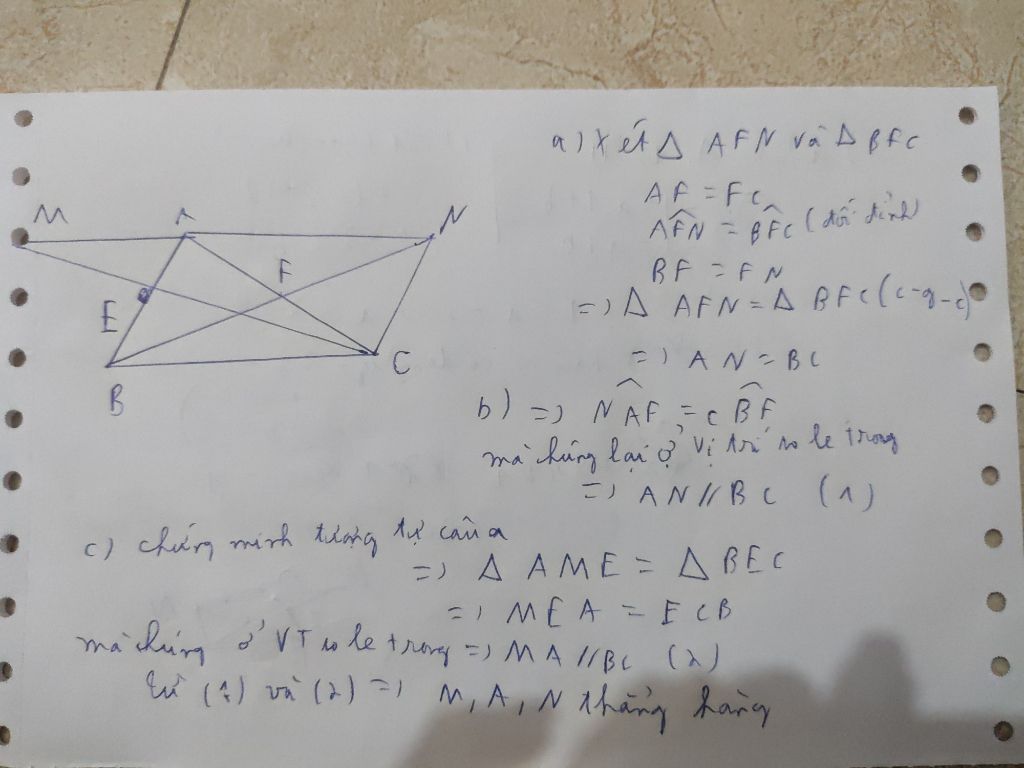 M A N
F
E
C
B
a) Xét Δ AFN và Δ BFC
AF = FC
AF̂N = BF̂C (đối đỉnh)
BF = FN
=> Δ AFN = Δ BFC (c-g-c)
=> AN = BC
b) => NÂF = CB̂F
mà chúng lại ở vị trí so le trong
=> AN // BC (1)
c) chứng minh tương tự câu a
=> Δ AME = Δ BEC
=> MEA = ECB
mà chúng ở VT so le trong => MA // BC (2)
từ (1) và (2) => M, A, N thẳng hàng